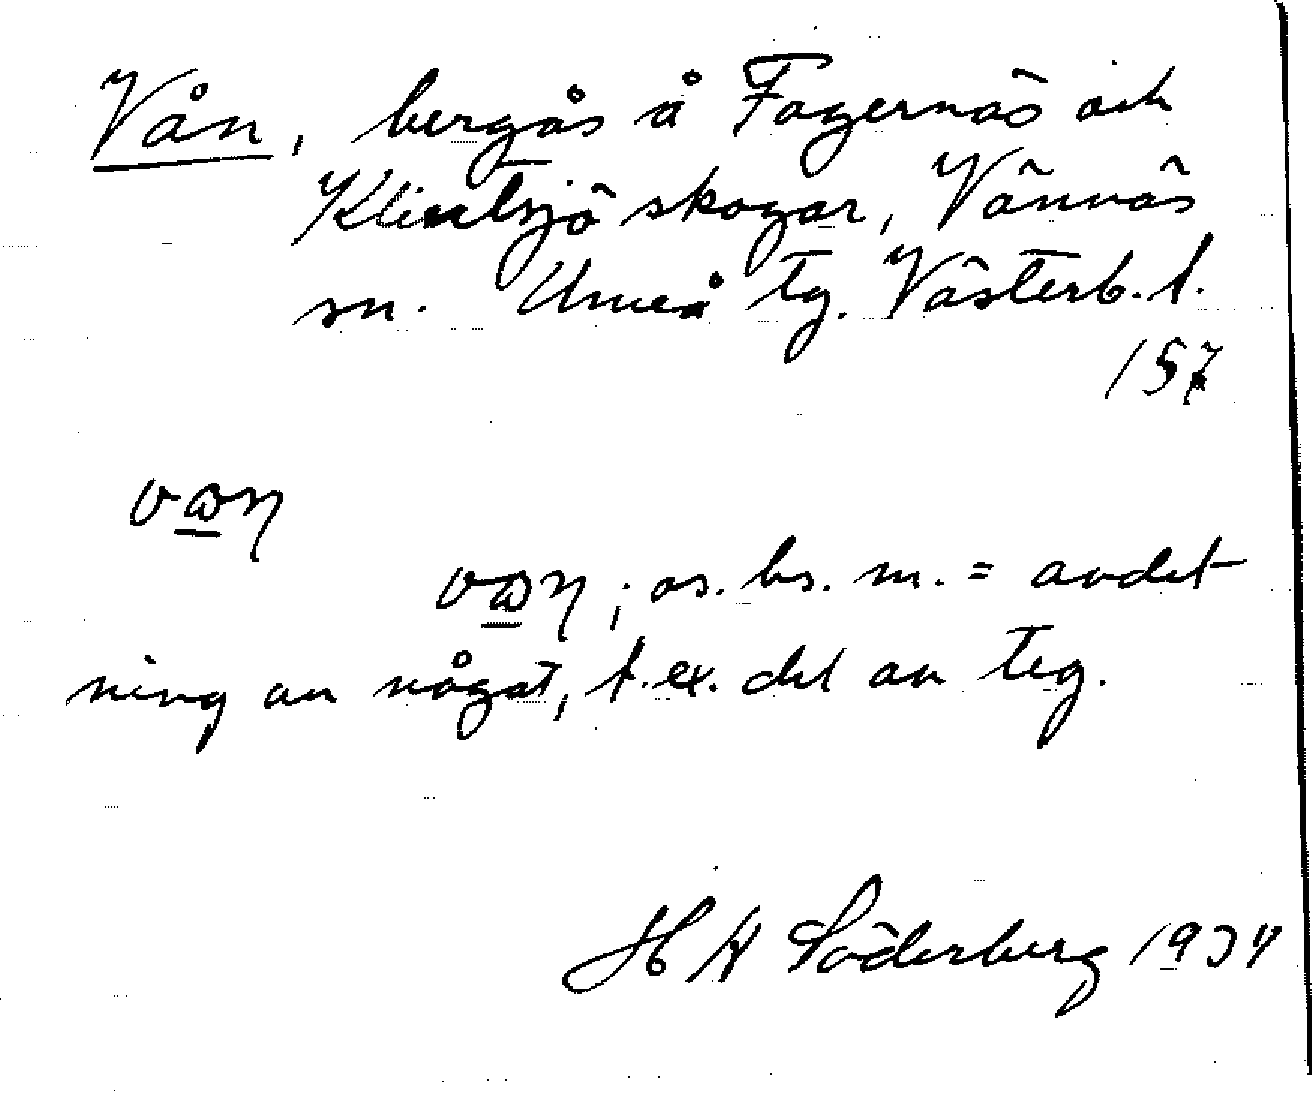 Vån, bergås å Fagernäs och
Klintsjö skogar, Vännäs
sn. Umeå tg. Västerb. l.
157
van
van; os. bs. m. = avdel
ning av något, t.ex. del av teg.
H W Söderberg 1934